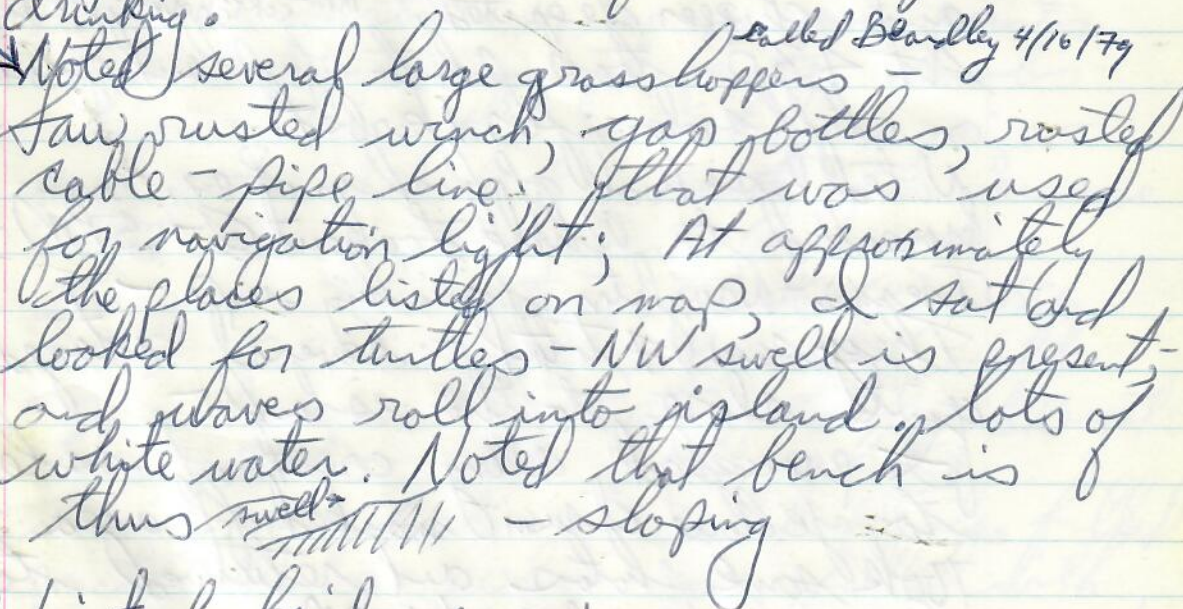 drinking.
called Beardsley 4/16/79
Noted several large grasshoppers –
Saw rusted winch, gas bottles, rusted
cable – pipe line; that was used
for navigation light; At approximately
the places listed on map, I sat and
looked for turtles – NW swell is present,
and waves roll into island. lots of
white water. Noted that bench is
thus swell – sloping